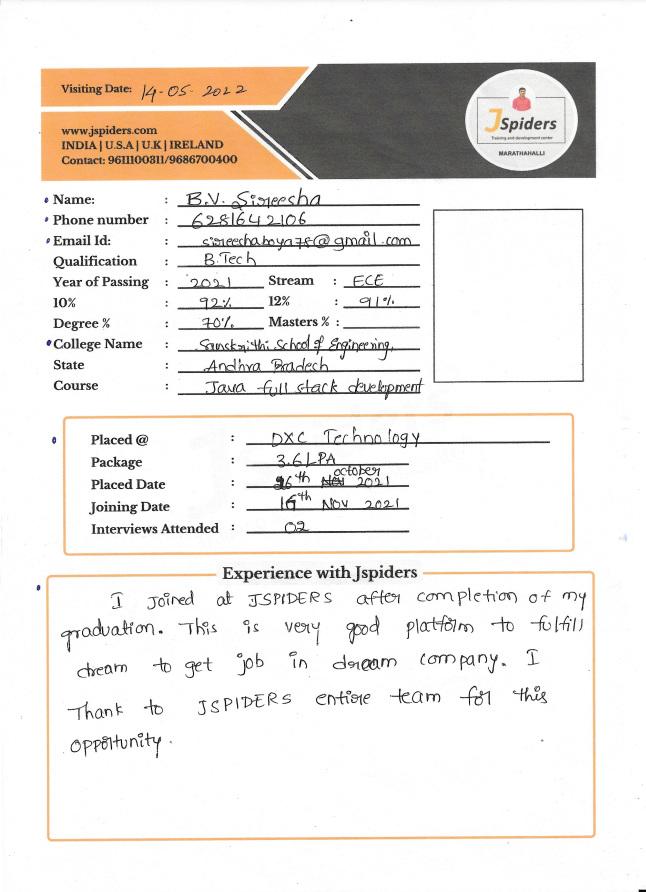 Visiting Date: 14-05-2022
www.jspiders.com
INDIA | U.S.A | U.K | IRELAND
Contact: 9611100311/9686700400
JSpiders
Training and development center
MARATHAHALLI
Name: B.V. Sireesha
Phone number : 6281642106
Email Id: : sireechaboya78@gmail.com
Qualification : B.Tech
Year of Passing : 2021 Stream : ECE
10% : 92% 12% : 91%
Degree % : 70% Masters % :
College Name : Sanskrithi School of Engineering,
State : Andhra Pradech
Course : Java full stack development
Placed @ : DXC Technology
Package : 3.6 LPA
october
Placed Date : 26th Nov 2021
Joining Date : 16th Nov 2021
Interviews Attended : 02
Experience with Jspiders
I Joined at JSPIDERS after completion of my
graduation. This is very good platform to fulfill
dream to get job in dream company. I
Thank to JSPIDERS entire team for this
opportunity.